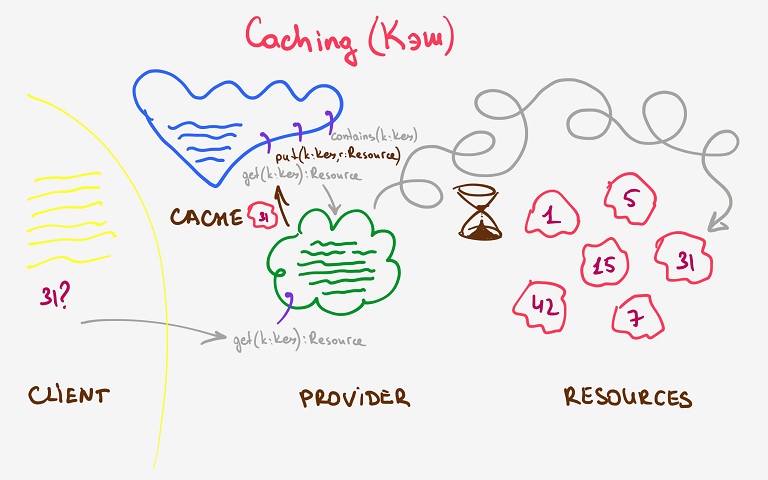 Caching (Кэш)
contains(k:Key)
put(k:Key,r:Resource)
get(k:Key):Resource
CACHE 31
1
5
15
31
42
7
31?
get(k:Key):Resource
CLIENT
PROVIDER
RESOURCES